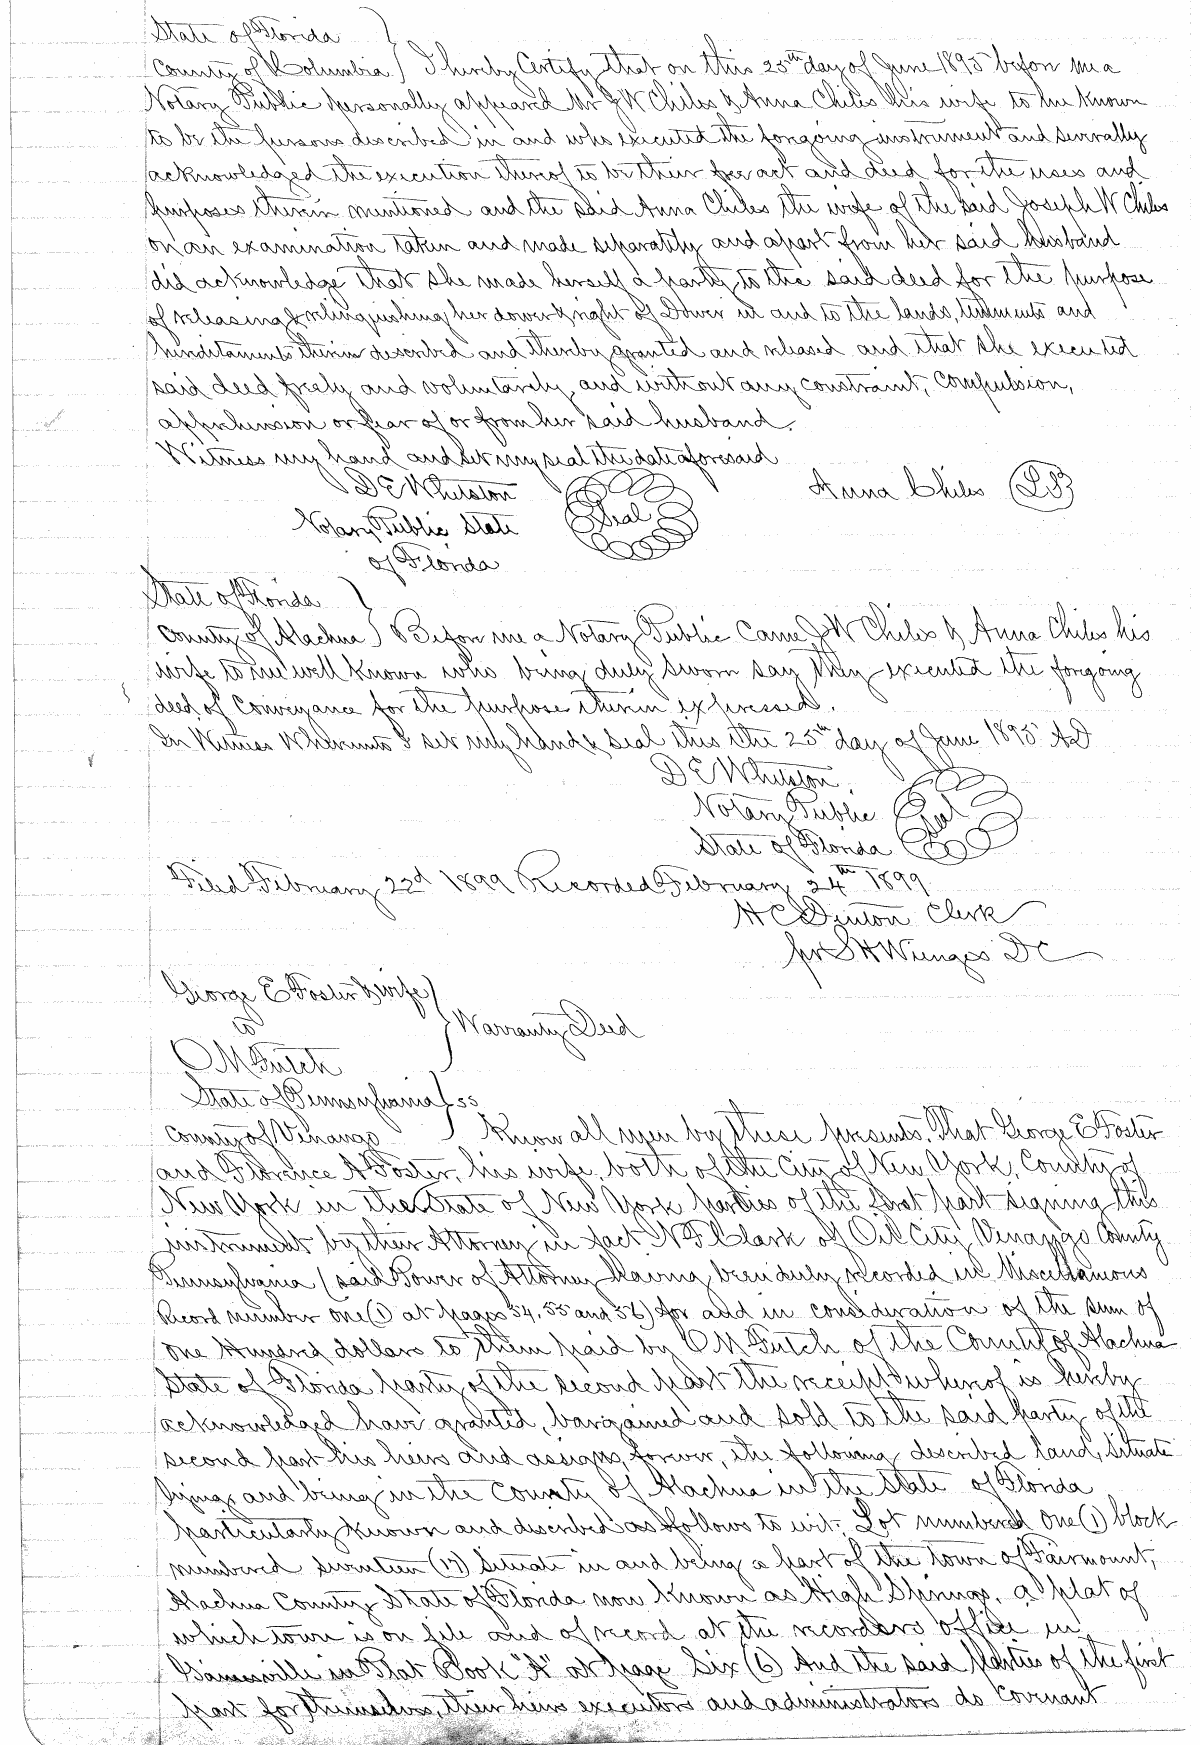 State of Florida
County of Columbia } I hereby Certify that on this 25th day of June 1895 before me a
Notary Public personally appeared Mr J W Chiles & Anna Chiles his wife to me known
to be the persons described in and who executed the forgoing instrument and severally
acknowledged the execution thereof to be their free act and deed for the uses and
purposes therein mentioned and the said Anna Chiles the wife of the said Joseph W Chiles
on an examination taken and made separately and apart from her said husband
did acknowledge that she made herself a party to the said deed for the purpose
of releasing & relinquishing her dower & right of Dower in and to the lands, tenements and
hereditaments therein described and thereby granted and released and that she executed
said deed freely and voluntarily and without any constraint, compulsion,
apprehension or fear of or from her said husband.
Witness my hand and set my seal the date aforesaid
D E Whetston Anna Chiles (LS)
Notary Public State Seal
of Florida
State of Florida
County of Alachua } Before me a Notary Public Came J W Chiles & Anna Chiles his
wife to me well known who being duly sworn say they executed the forgoing
deed of Conveyance for the purpose therein expressed.
In Witness Whereunto I set my hand & seal this the 25th day of June 1895 AD
D E Whetston
Notary Public Seal
State of Florida
Filed February 22d 1899 Recorded February 24th 1899
H C Denton Clerk
per S H Wienges D C
George E Foster & wife
to } Warranty Deed
O M Futch
State of Pennsylvania } ss
County of Venango } Know all men by these presents, That George E Foster
and Florence A Foster, his wife, both of the City of New York, County of
New York in the State of New York parties of the first part signing this
instrument by their Attorney in fact N F Clark of Oil City Venango County
Pennsylvania (said Power of Attorney having been duly recorded in Miscellaneous
Record number one (1) at pages 54, 55 and 56) for and in consideration of the sum of
One Hundred dollars to them paid by O M Futch of the County of Alachua
State of Florida party of the second part the receipt whereof is hereby
acknowledged have granted, bargained and sold to the said party of the
second part his heirs and assigns, forever, the following described land, situate
lying and being in the County of Alachua in the State of Florida
particularly known and described as follows to wit: Lot numbered One (1) block
numbered seventeen (17) situate in and being a part of the town of Fairmount,
Alachua County State of Florida now known as High Springs, a plat of
which town is on file and of record at the recorders office in
Gainesville in Plat Book "A" at page Six (6) And the said Parties of the first
part for themselves, their heirs executors and administrators do covenant